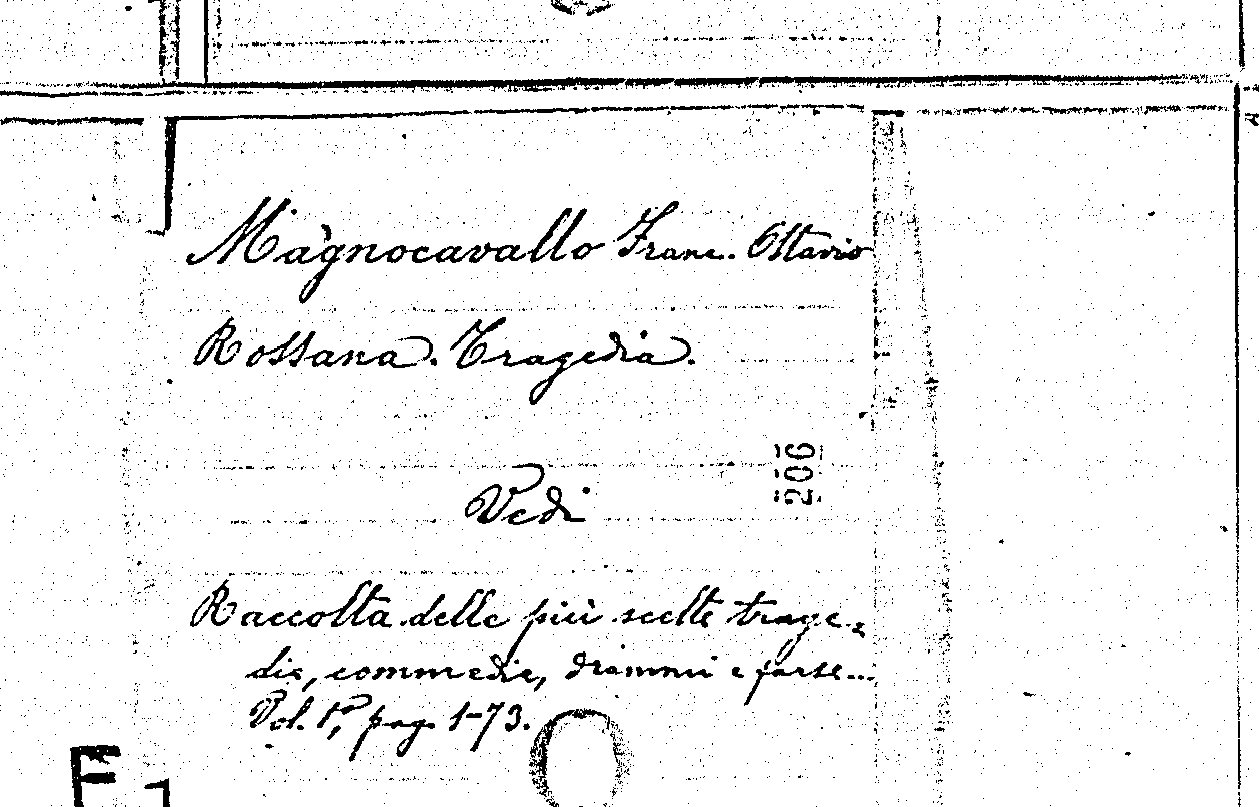 Magnocavallo Franc. Ottavio
Rossana. Tragedia.
206
Vedi
Raccolta delle più scelte trage=
die, commedie, drammi e farse...
Vol. 1º, pag. 1-73.
F